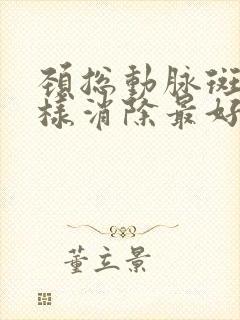 頚总動脉斑
樣消除最好
董立景